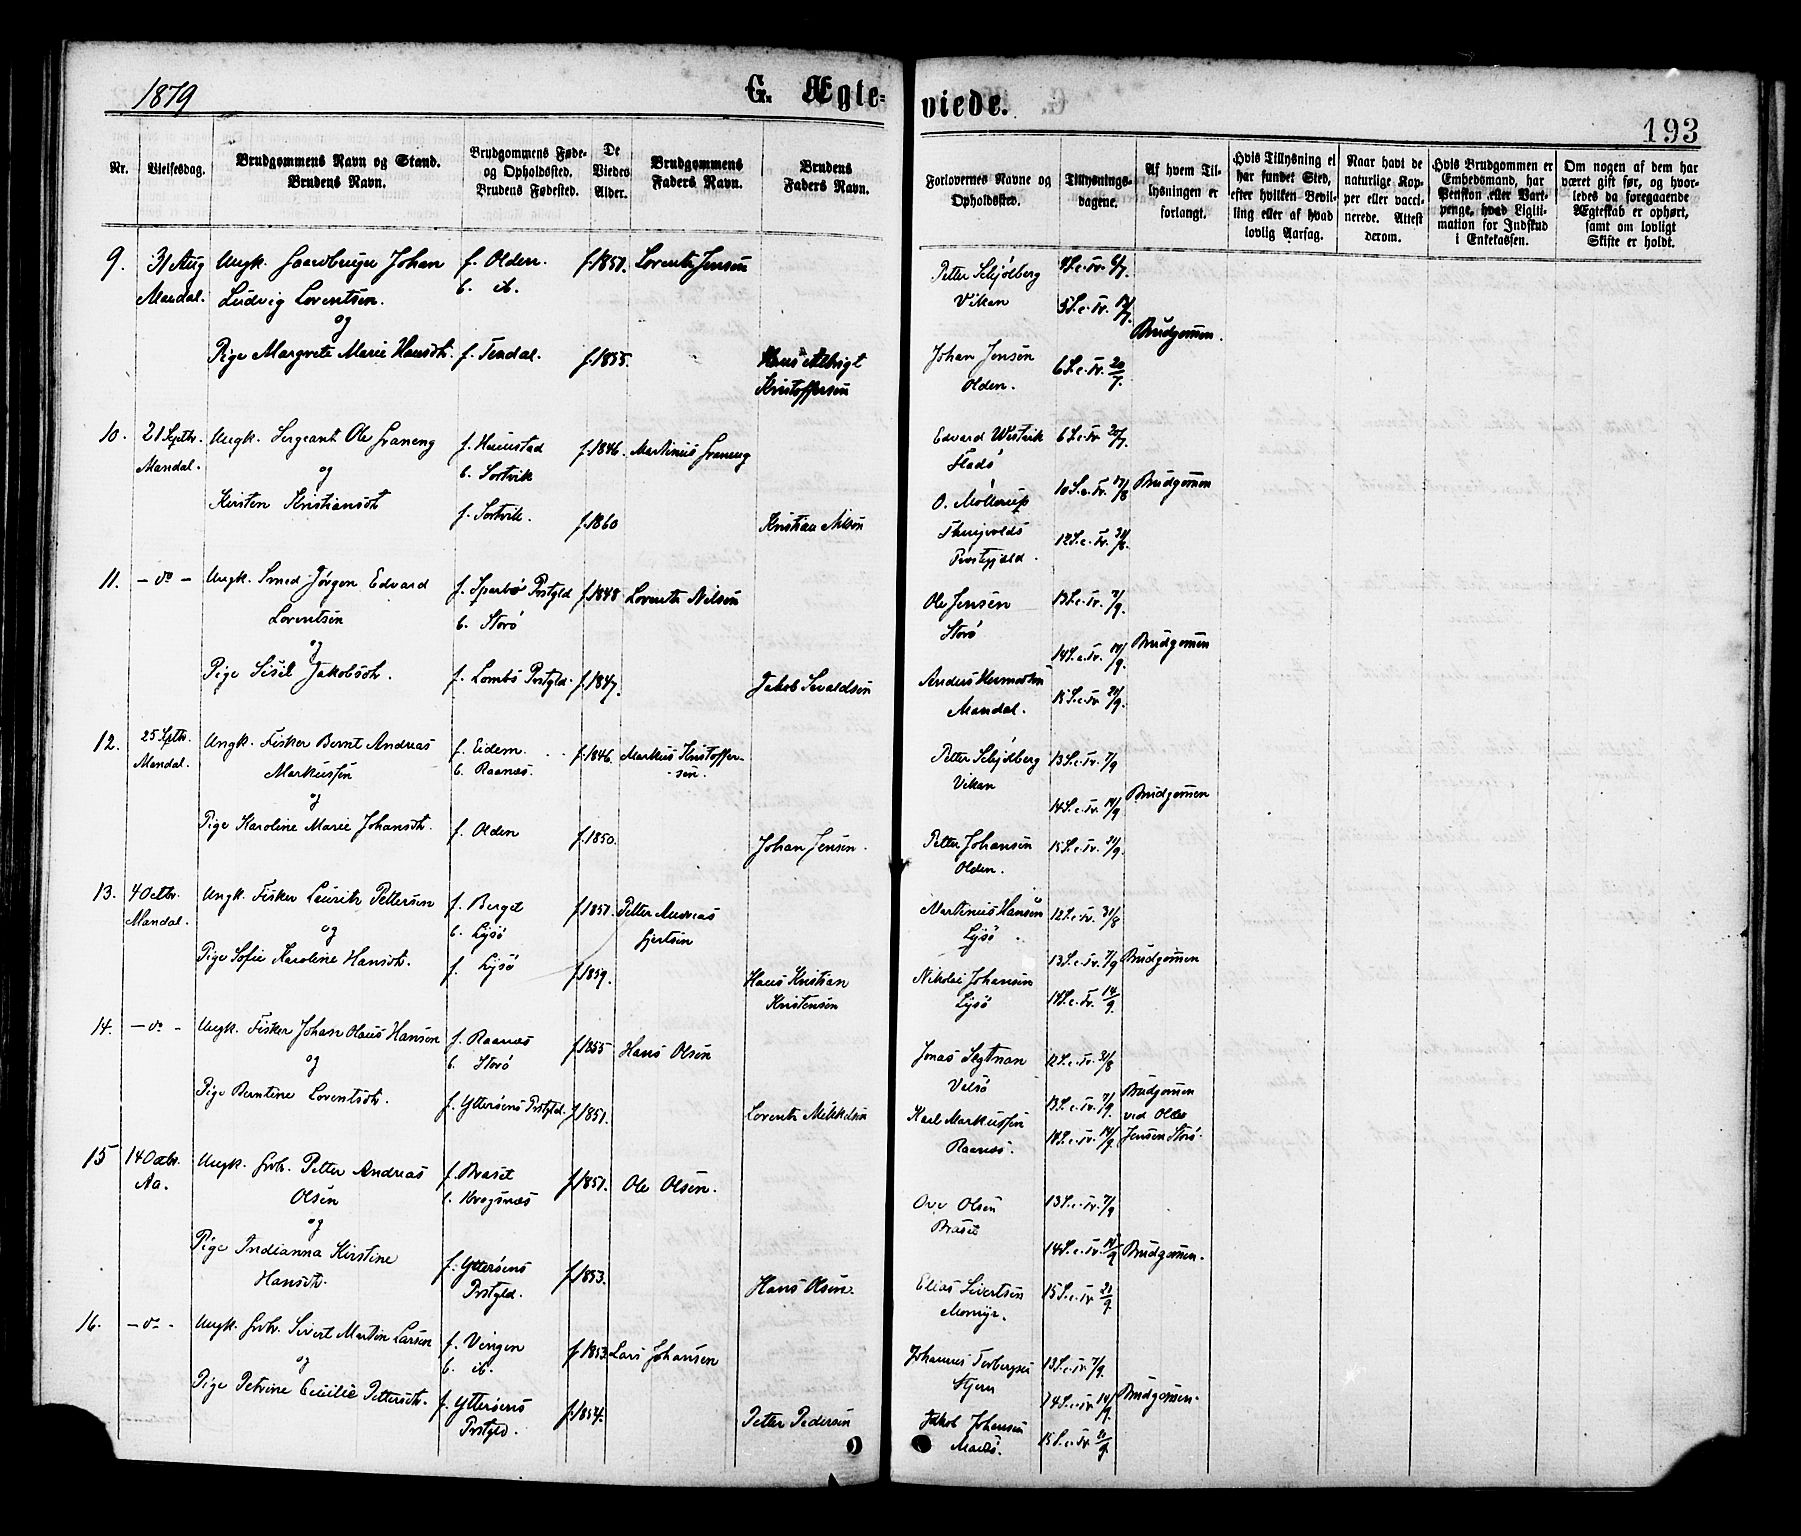 1879
G. Ægte-
viede.
193
Nr.
Vielsesdag.
Brudgommens Navn og Stand.
Brudens Navn.
Brudgommens Føde-
og Opholdssted.
Brudens Fødested.
De
Viedes
Alder.
Brudgommens
Faders Navn.
Brudens
Faders Navn.
Forlovernes Navne og
Opholdssted.
Tillysnings-
dagene.
Af hvem Til-
lysningen er
forlangt.
Hvis Tillysning ei
har fundet Sted,
efter hvilken Bevil-
ling eller af hvad
lovlig Aarsag.
Naar havt de
naturlige Kop-
per eller vacci-
nerede. Attest
derom.
Hvis Brudgommen er
Embedsmand, har
Pension eller Vart-
penge, hvad Ligiti-
mation for Indskud
i Enkekassen.
Om nogen af dem har
været gift før, og hvor-
ledes da foregaaende
Ægteskab er ophørt,
samt om lovligt
Skifte er holdt.
9. 31 Aug Ungk. Johan f. Olden. f. 1851. Lorents Jensen
Mandal. Ludvig Lorentsen. b. ib.
og
Pige Margrete Marie Hansdt. f. Tendal. f. 1855. Hans Albrigt
Kristoffersen
Petter Schjølberg 4 S. e. Tr. 6/7.
Vikan 5 S. e. Tr. 13/7.
Brudgommen.
Johan Jensen 6 S. e. Tr. 20/7.
Olden.
10. 21 Septbr. Ungk. Sergeant Ole Graneng f. f. 1846. Martinus Graneng
Mandal. og b. Sortvik
Kirsten Kristiansdt f. Sortvik. f. 1860 Kristian Nilsen
Edvard Westvik 6 S. e. Tr. 20/7.
Fladø
O. Møllerup 10 S. e. Tr. 17/8 Brudgommen
12 S. e. Tr. 31/8.
11. - do - Ungk. Smed Jørgen Edvard f. Sparbø Prstgld f. 1848 Lorents Nilsen
Lorentsen b. Storø
og
Pige Sisil Jakobsdt. f. Lombs Prstgld. f. 1847. Jakob Sivaldsen
Ole Jensen 13 S. e. Tr. 7/9.
Storø
14 S. e. Tr. 14/9. Brudgommen
Anders
Mandal. 15 S. e. Tr. 21/9.
12. 25 Septbr. Ungk. Fisker Bernt Andreas f. Eidem. f. 1846. Markus Kristoffer-
Mandal. Markussen b. Raanæs. -sen.
og
Pige Karoline Marie Johansdt. f. Olden f. 1850. Johan Jensen.
Petter Schjølberg 13 S. e. Tr. 7/9
Vikan
14 S. e. Tr. 14/9 Brudgommen
Petter Johansen 15 S. e. Tr. 21/9.
Olden.
13. 4 Octbr. Ungk. Fisker Laurits Pettersen f. Berget f. 1851. Petter Andreas
Mandal. og b. Lysø Gjertsen
Pige Sofie Karoline Hansdt. f. Lysø f. 1859. Hans Kristian
Kristensen
Martinus Hansen 12 S. e. Tr. 31/8
Lysø.
13 S. e. Tr. 7/9 Brudgommen
Nikolai Johansen 14 S. e. Tr. 14/9.
Lysø
14. - do - Ungk. Fisker Johan Olaus Hansen f. Raanæs f. 1855 Hans Olsen
og b. Storø
Pige Berntine Lorentsdt. f. Yttersøens Prstgld. f. 1851. Lorents Mikkelsen
Jonas Sagtnan 12 S. e. Tr. 31/8
Valsø
13 S. e. Tr. 7/9. Brudgommen
ved Olaus
Karl Markussen 14 S. e. Tr. 14/9 Jensen Storø.
Raanæs.
15 14 Octbr. Ungk. Grbr. Petter Andreas f. Braset f. 1851. Ole Olsen.
Aa. Olsen b. Krogsnæs
og
Pige Indianna Kirstine f. Yttersøens f. 1853. Hans Olsen.
Hansdt. Prstgld.
Ove Olsen 13 S. e. Tr. 7/9
Braset
14 S. e. Tr. 14/9 Brudgommen.
Elias Sivertsen 15 S. e. Tr. 21/9.
16. - do - Ungk. Grbr. Sivert Martin Larsen f. Vingen f. 1853. Lars Johansen
og b. ib.
Pige Petrine Cecilie Pettersdt. f. Yttersøens f. 1854. Petter Pedersen
Prstgld.
Johannes Torbergsen 13 S. e. Tr. 7/9.
14 S. e. Tr. 14/9. Brudgommen.
Jakob Johansen 15 S. e. Tr. 21/9.